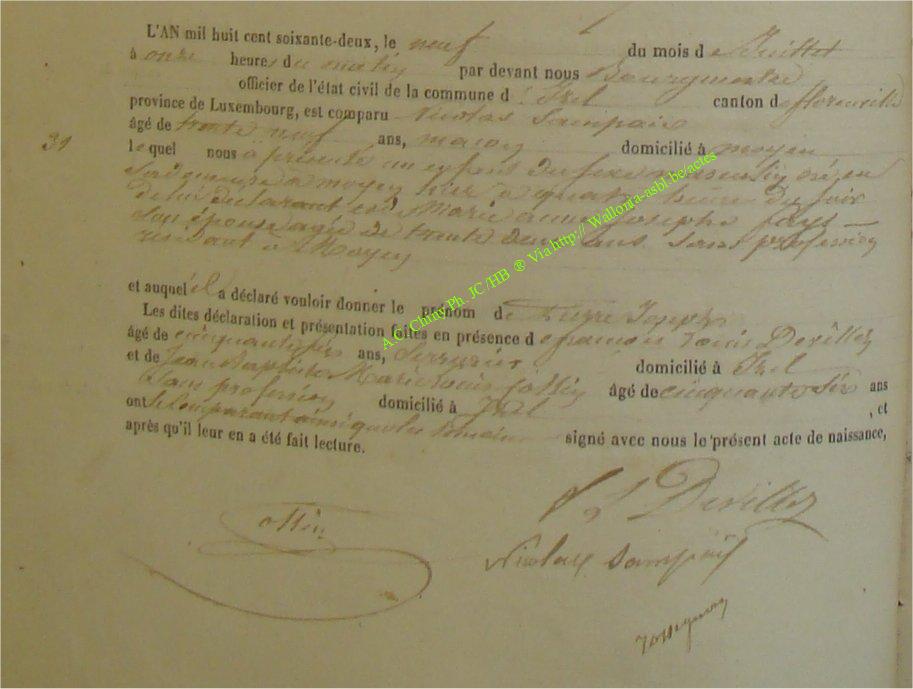 L'AN mil huit cent soixante-deux, le neuf du mois de Juillet
à onze heures du matin par devant nous Bourgmestre
officier de l'état civil de la commune d'Izel canton de florenville
province de Luxembourg, est comparu Nicolas Sampaix
31 âgé de trente neuf ans, maçon domicilié à moyen
lequel nous a présenté un enfant du sexe masculin né en
sa demeure à moyen hier à quatre heures du soir
de lui déclarant et de Marie anne josephe
son épouse agée de trente deux ans sans profession
résidant à Moyen
et auquel il a déclaré vouloir donner le prénom de Pierre Joseph
Les dites déclaration et présentation faites en présence de françois Louis Devillez
âgé de cinquante six ans, Serrurier domicilié à Izel
et de Jean Baptiste Marie Louis âgé de cinquante six ans
Sans profession domicilié à Izel , et
ont le comparant ainsi que les témoins signé avec nous le présent acte de naissance,
après qu'il leur en a été fait lecture.
F L Devillez
Nicolas Sampaix
A.C. Chiny Ph. JC/HB ® Via http:// Wallonia-asbl.be/actes